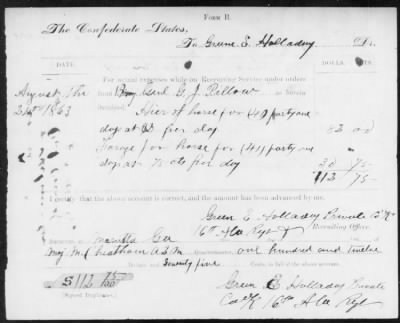 FORM B.
The Confederate States,
To Greene E. Holladay Dr.
DATE. DOLLS. CTS.
For actual expenses while on Recruiting Service under orders
August the from Genl G. J. Pillow as herein
31st 1863 itemized:
Hier of horse for (41) forty one
days at $2 per day 82 00
Forage for horse for (41) forty one
days at 75 cts per day 30 75
112 75
I certify that the above account is correct, and the amount has been advanced by me.
Green E Holladay Private Co K
16th Ala Regt Recruiting Officer.
RECEIVED at Marietta Ga
Maj. M. Cheatham A.Q.M. Quartermaster, one hundred and twelve
Dollars and Seventy five Cents, in full of the above account.
$112 75/100
Green E Holladay Private
Co K 16th Ala Regt
(Signed Duplicates.)